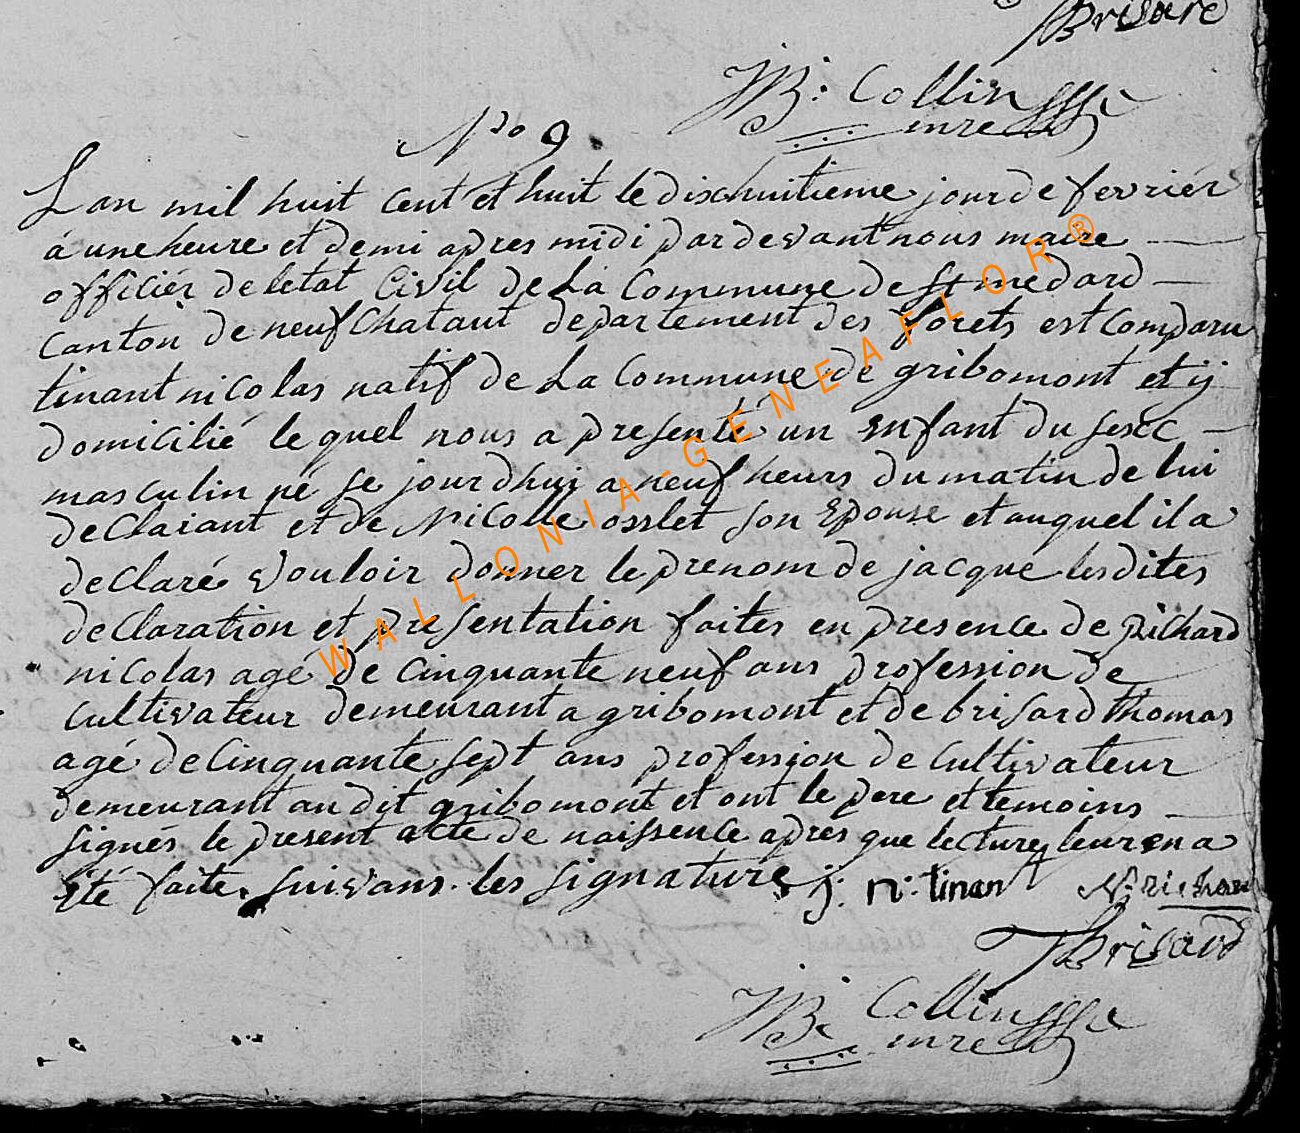 Brisard
JB: Collin
mre
No 9.
L an mil huit cent et huit le dixhuitieme jour de fevriér
á une heure et demi apres midi par devant nous maire
officiér de letat Civil de La Commune de St medard
Canton de neufchataut departement des forets est comparu
tinant nicolas natif de La Commune de gribomont et ij
domicilié le quel nous a presenté un enfant du sexe
masculin né se jourdhuj a neuf heurs du matin de lui
declaiant et de Nicolle osslet son Epouse et auquel il a
declaré vouloir donner le prenom de jacque lesdites
declaration et presentation faites en presence de Richard
nicolas agé de cinquante neuf ans profession de
cultivateur demeurant a gribomont et de brisard thomas
agé de cinquante sept ans profession de cultivateur
demeurant au dit gribomont et ont le pere et temoins
signés le present acte de naissence apres que lecture leur en a
été faite. suivans les signatures j: n: tinan N: richar
T Brisard
JB: Collin
mre
WALLONIA-GENEAFLOR®